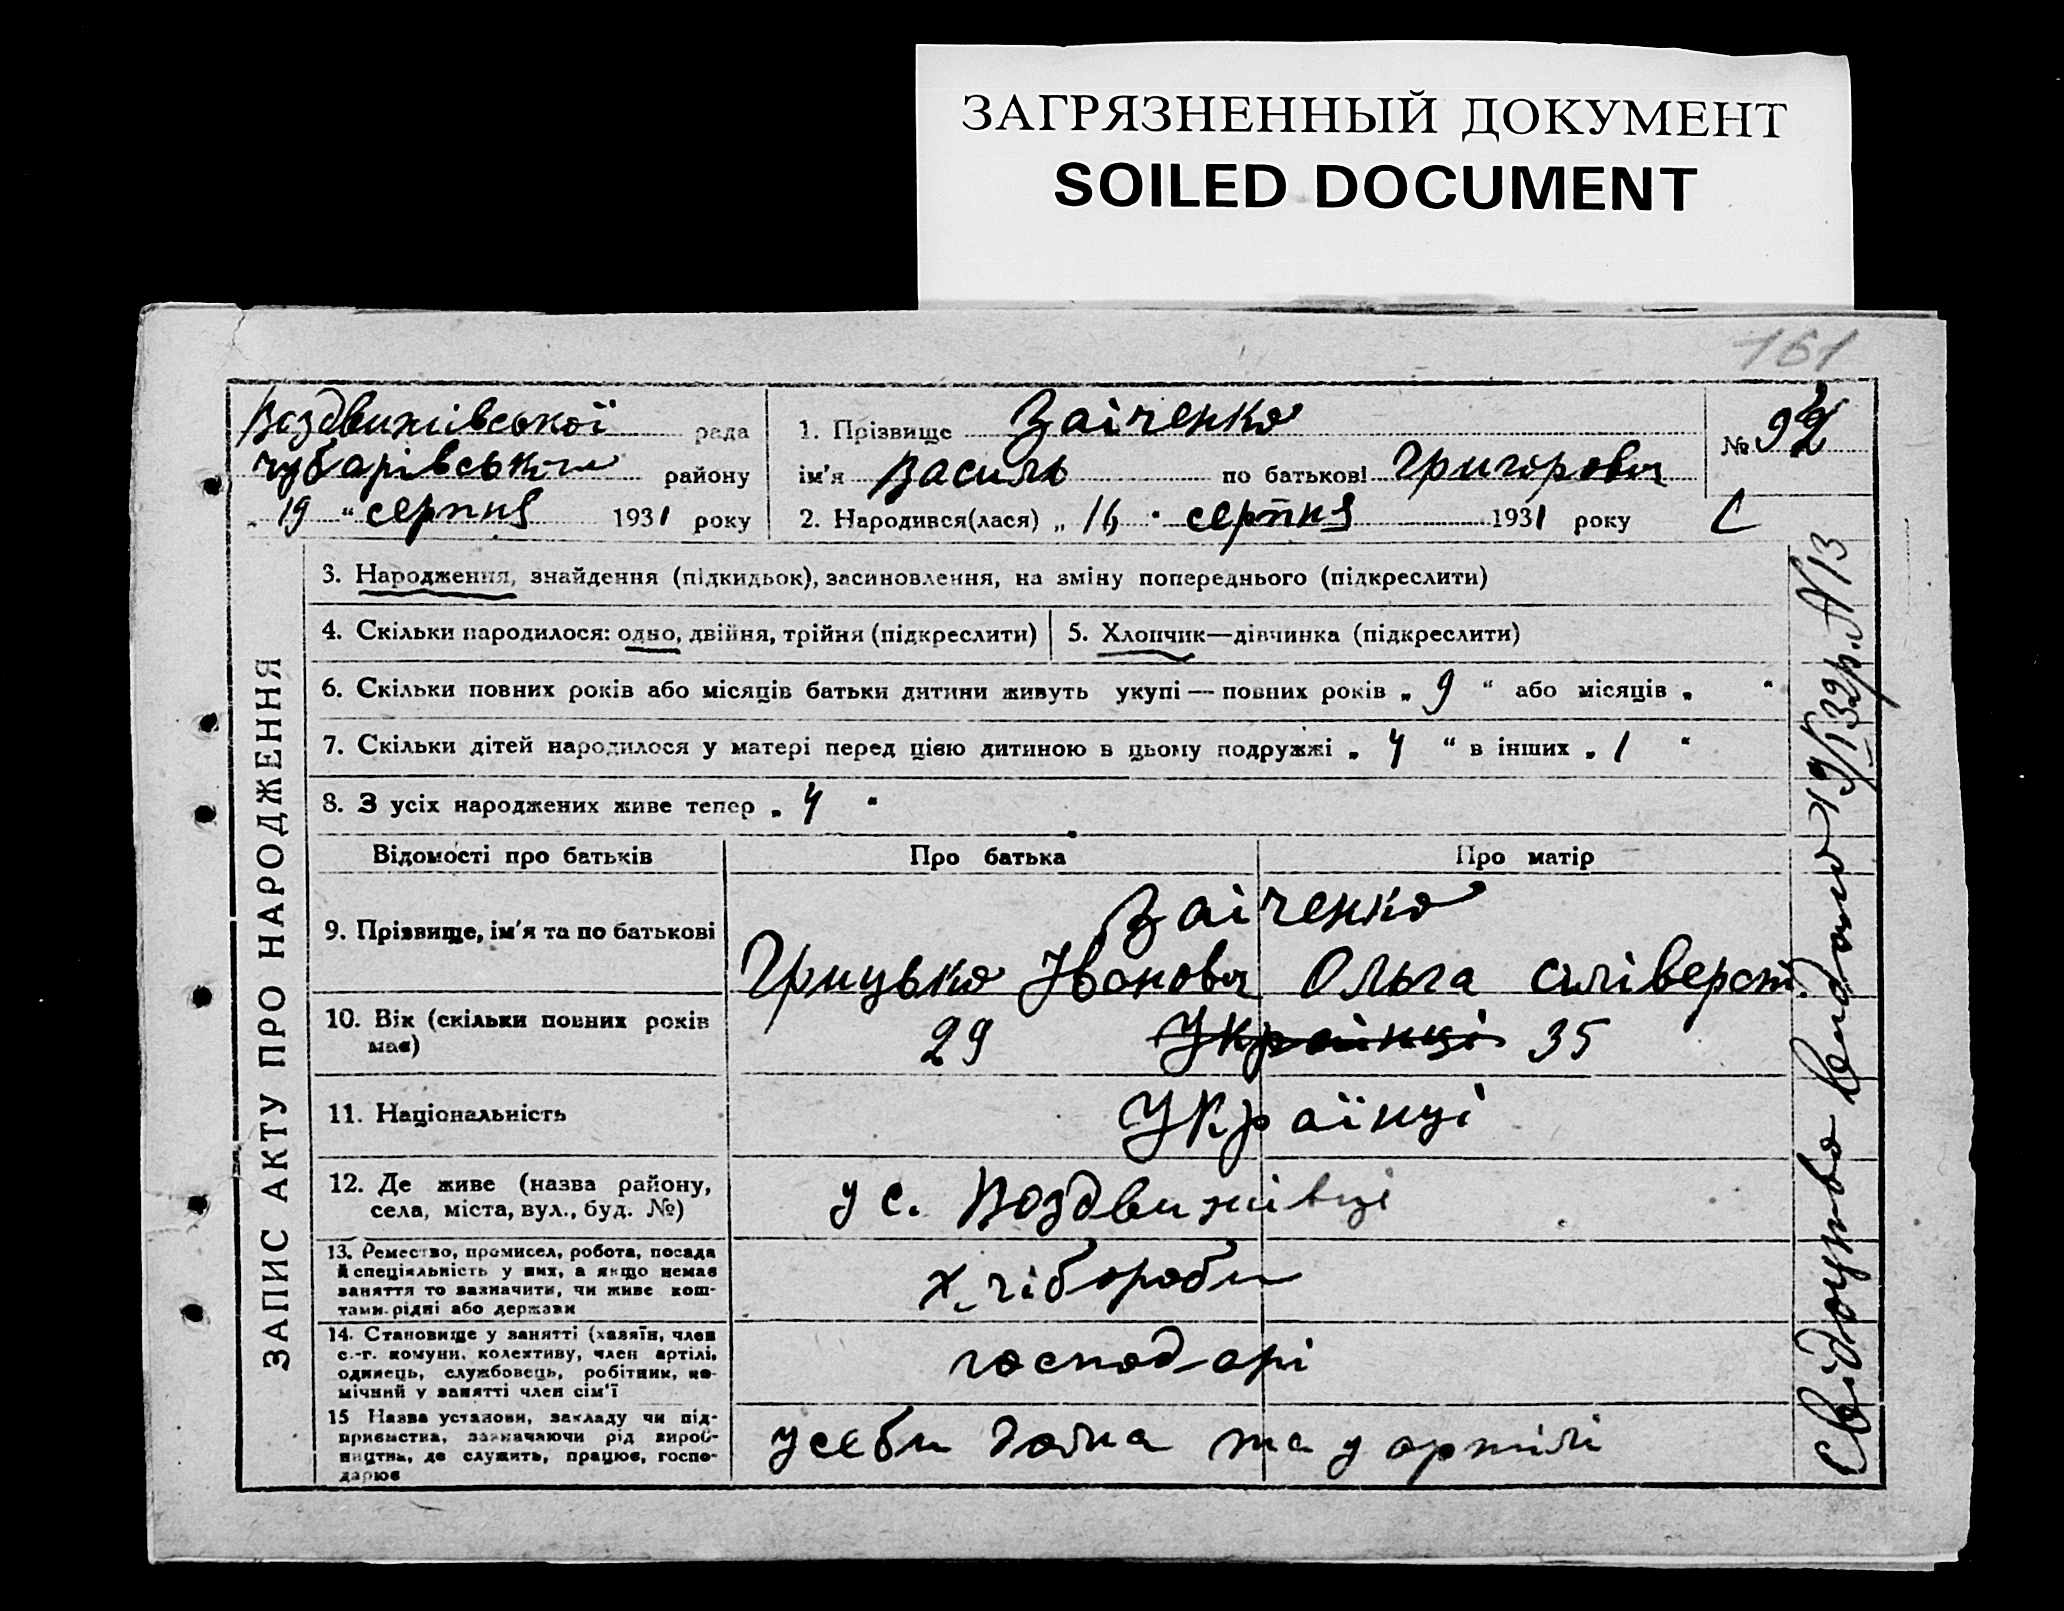 ЗАГРЯЗНЕННЫЙ ДОКУМЕНТ
SOILED DOCUMENT
161
Воздвижівської рада
Чубарівського району
„ 19 “ серпня 1931 року
1. Прізвище Заіченко
ім'я Василь по батькові Григорович
2. Народився(лася) „ 16 “ серпня 1931 року
№ 92
С
ЗАПИС АКТУ ПРО НАРОДЖЕННЯ
3. Народження, знайдення (підкидьок), засиновлення, на зміну попереднього (підкреслити)
4. Скільки народилося: одно, двійня, трійня (підкреслити)
5. Хлопчик—дівчинка (підкреслити)
6. Скільки повних років або місяців батьки дитини живуть укупі — повних років „ 9 “ або місяців „ “
7. Скільки дітей народилося у матері перед цією дитиною в цьому подружжі „ 4 “ в інших „ 1 “
8. З усіх народжених живе тепер „ 4 “
Відомості про батьків
Про батька
Про матір
9. Прізвище, ім'я та по батькові
Заіченко
Грицько Іванович Ольга Селіверст.
10. Вік (скільки повних років
має)
29 Українці 35
11. Національність
Українці
12. Де живе (назва району,
села, міста, вул., буд. №)
у с. Воздвижівці
13. Ремество, промисел, робота, посада
й спеціяльність у них, а якщо немає
заняття то зазначити, чи живе кош-
тами рідні або держави
хлібороби
14. Становище у занятті (хазяїн, член
с.-г. комуни, колективу, член артілі,
одинець, службовець, робітник, по-
мічний у занятті член сім'ї
господарі
15 Назва установи, закладу чи під-
приємства, зазначаючи рід вироб-
ництва, де служить, працює, госпо-
дарює
у себи дома та у артілі
Свідоцтво видано 19/I 32 р. № 13